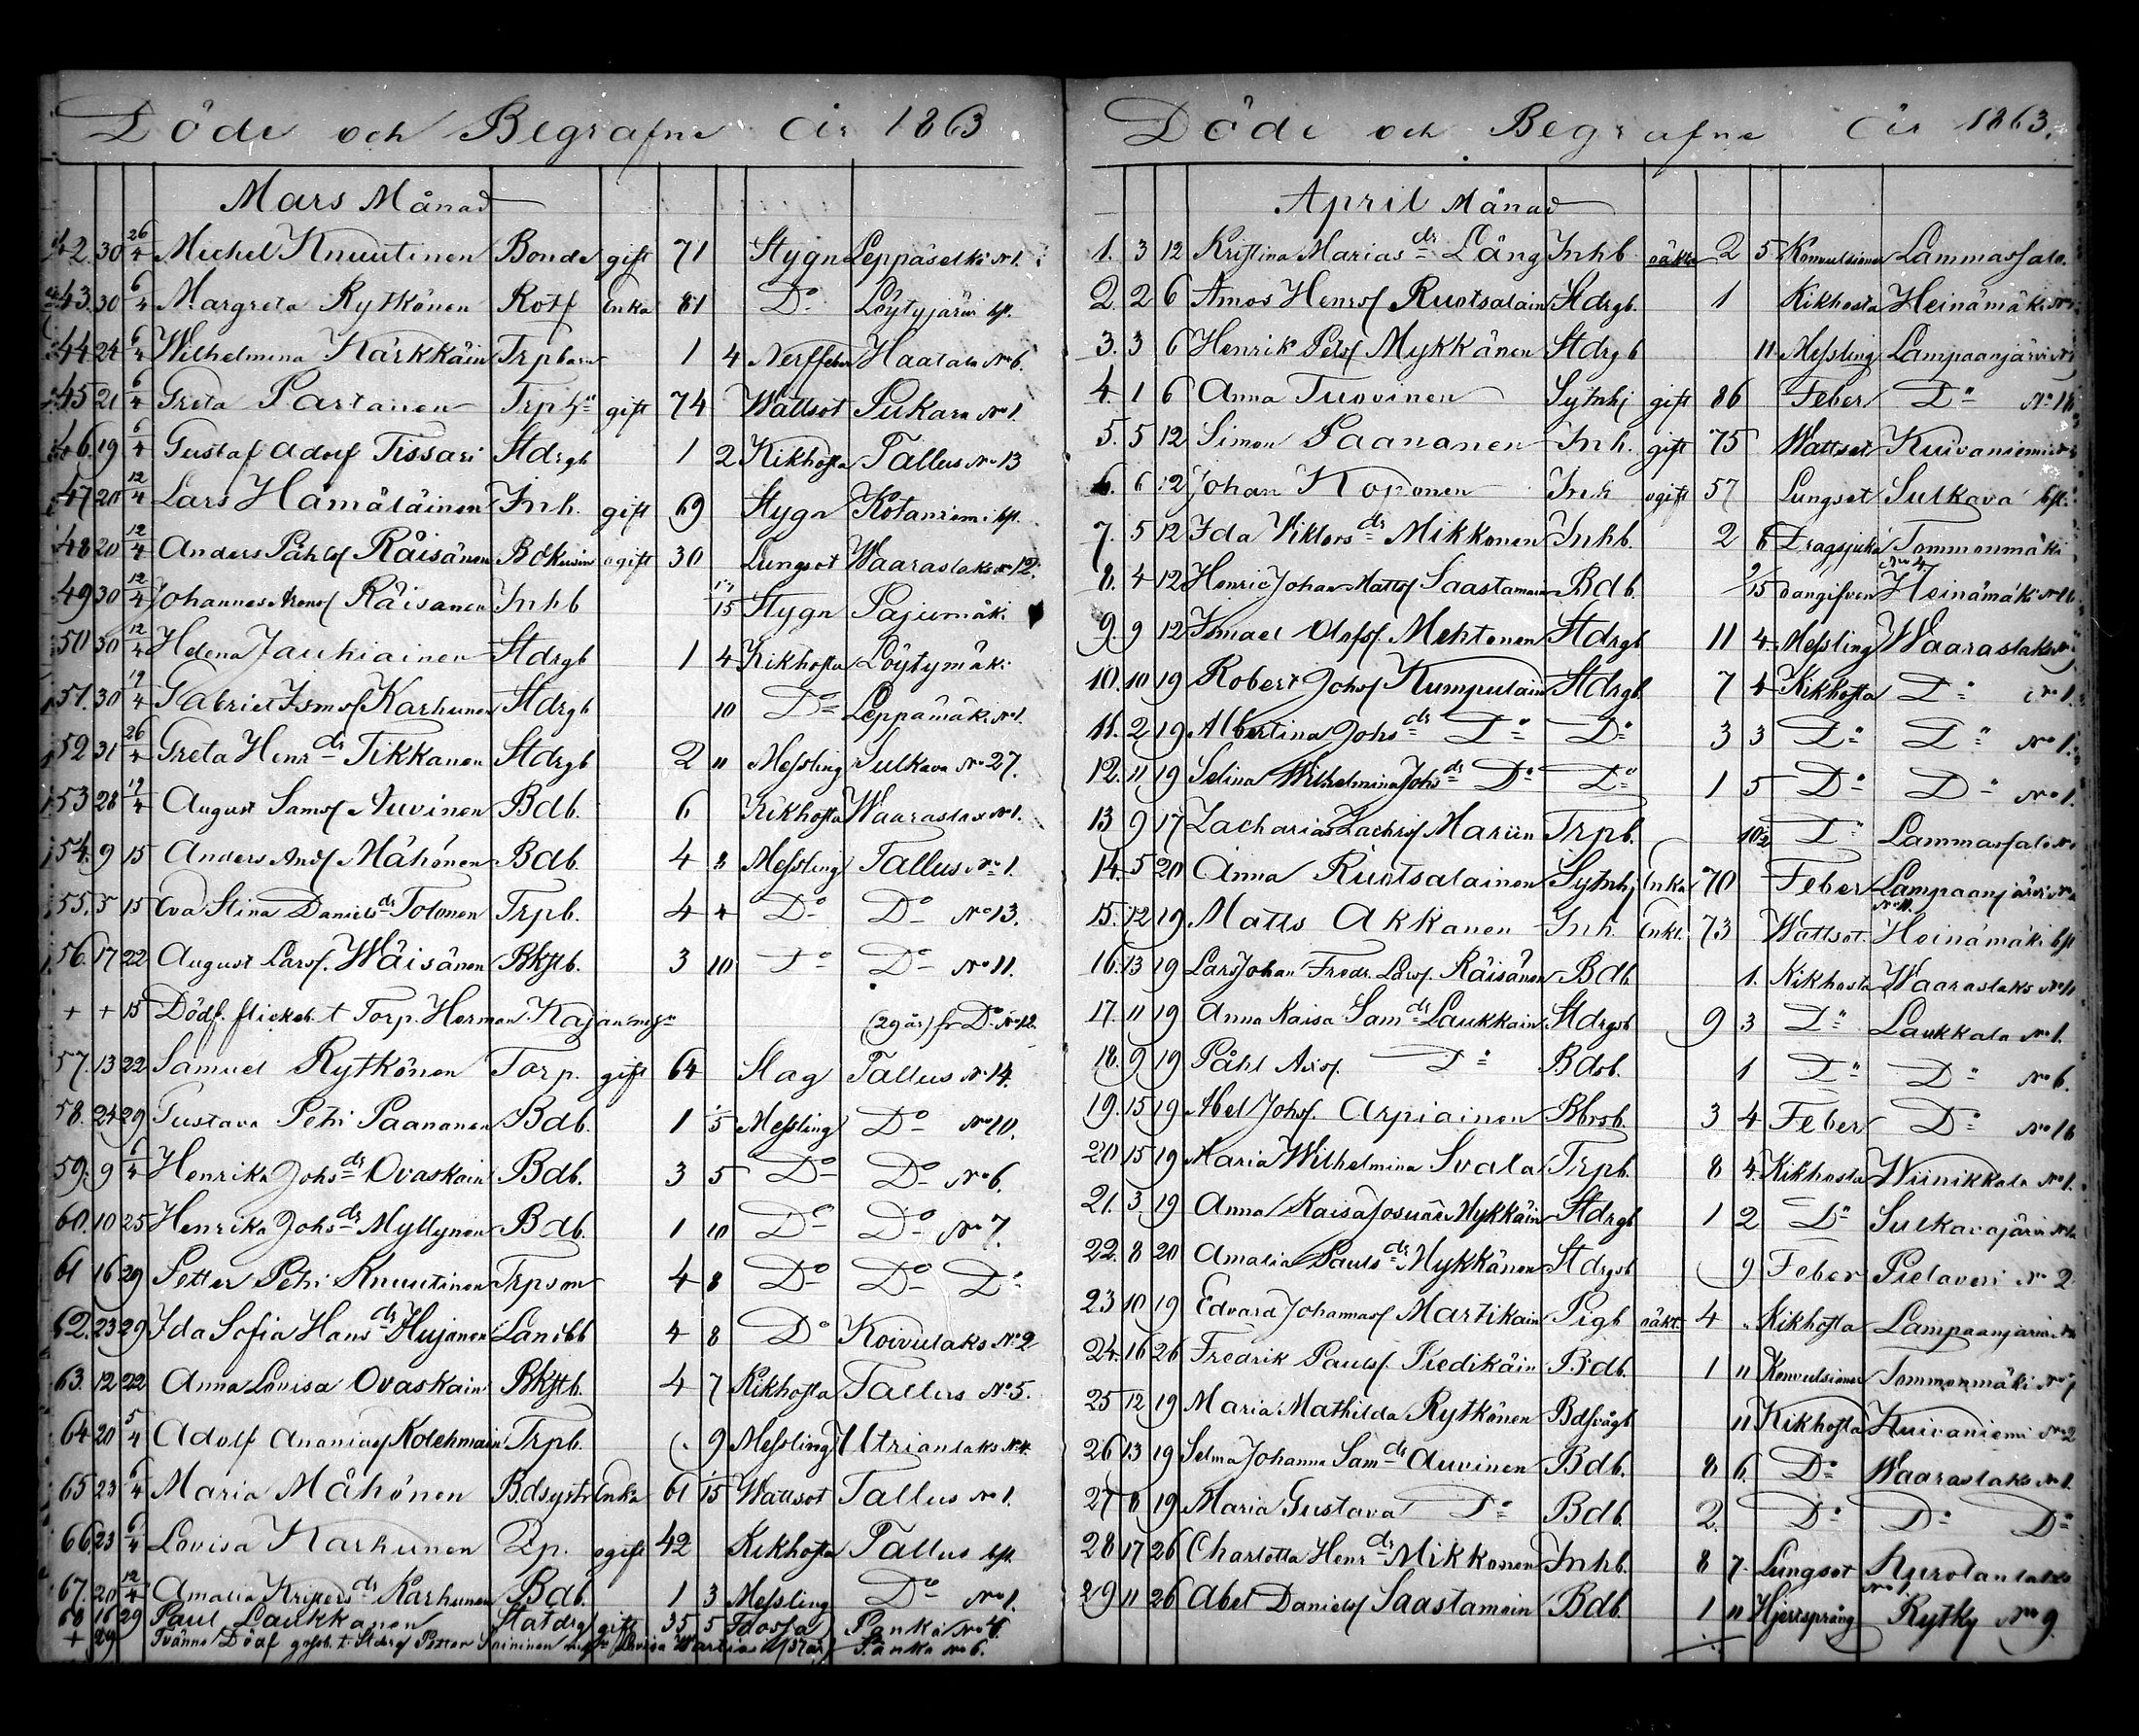 Döde och Begrafne År 1863
Mars Månad
42. 30 26/4 Michel Knuutinen Bonde gift 71 Stygn Leppäselkä No 1.
43. 30 6/4 Margreta Rytkönen Rotf Enka 81 Do Löytyjärvi bst.
44 24 6/4 Wilhelmina Kärkkäin Trpbarn 1 4 Nerffeber Haatala No 6.
45 21 6/4 Greta Partanen Trph:u gift 74 Wattsot Pukara No 1.
46. 19 6/4 Gustaf Adolf Tissari Stdrgb 1 2 Kikhosta Tallus No 13
47 20 12/4 Lars Hämäläinen Inh. gift 69 Stygn Kotaniemi bst.
48 20 12/4 Anders Påhlsf Räisänen ogift 30 Lungsot Waaraslaks No 12.
49 30 12/4 Johannes Räisänen Inhb 15 Stygn Pajumäki
50 30 12/4 Helena Jauhiainen Stdrgb 1 4 Kikhosta Löytymäki
51. 30 19/4 Gabriel Ismsf Karhunen Stdrgb 10 Do Leppämäki No 1.
52 31 26/4 Greta Henrdr Tikkanen Stdrgb 2 11 Messling Sulkava No 27.
53 28 19/4 August Samsf Auvinen Bdb. 6 Kikhosta Waaraslax No 1.
54. 9 15 Anders Andsf Mähönen Bdb. 4 3 Messling Tallus No 1.
55. 5 15 Eva Stina Danielsdr Tolonen Trpb. 4 4 Do Do No 13.
56. 17 22 August Larsf. Wäisänen Bkstb. 3 10 Do Do No 11.
+ + 15 Dödf. flickeb. t Torp. Herman Kajan (29 år) fr Do No 12.
57. 13 22 Samuel Rytkönen Torp. gift 64 Slag Tallus No 14.
58. 24 29 Gustava Petri Paananen Bdb. 1 5 Messling Do No 10.
59. 9 6/4 Henrika Johsdr Ovaskain Bdb. 3 5 Do Do No 6.
60. 10 25 Henrika Johsdr Myllynen Bdb. 1 10 Do Do No 7.
61 16 29 Petter Petri Knuutinen Trpson 4 8 Do Do Do
62. 23 29 Ida Sofia Hansdr Hujanen 4 8 Do Koivulaks No 2
63. 12 22 Anna Lovisa Ovaskain Bkstb. 4 7 Kikhosta Tallus No 5.
64 20 5/4 Adolf Ananiasf Kolehmain Trpb. 9 Messling Utrianlaks No 4.
65 23 6/4 Maria Mähönen Bdsystr Enka 61 15 Wattsot Tallus No 1.
66. 23 6/4 Lovisa Karhunen Pp. ogift 42 Kikhosta Tallus bst.
67. 20 12/4 Amalia Kristersdr Karhunen Bdb. 1 3 Messling Do No 1.
68 16 29 Paul Laukkanen Statdrg gift 35 5 Panka No 4.
+ 29 Tvänne Dödf gossb. t. Stdrg Petter Lovisa (37 år) Panka No 6.
Döde och Begrafne År 1863.
April Månad
1. 3 12 Kristina Mariasdr Läng Inhb oäkta 2 5 Konvulsioner Lammassalo.
2. 2 6 Amos Henrsf Ruotsalain Stdrgb. 1 Kikhosta Heinämäki No
3. 3 6 Henrik Petsf Mykkänen Stdrgb 11 Messling Lampaanjärvi No
4. 1 6 Anna Tuovinen Sytnhj gift 86 Feber Do No 16
5. 5 12 Simon Paananen Inh. gift 75 Wattsot Kuivaniemi
6. 6 12 Johan Koponen Inh ogift 57 Lungsot Sulkava bst.
7. 5 12 Ida Viktorsdr Mikkonen Inhb. 2 6 Dragsjuka Tommonmäki No 4
8. 4 12 Henric Johan Mattsf Saastamoin Bdb. 2/15 oangifven Heinämäki No 16
9. 9 12 Ismael Olofsf. Mehtonen Stdrgb 11 4 Messling Waaraslaks
10. 10 19 Robert Johsf Kumpulain Stdrgb 7 4 Kikhosta Do No 1.
11. 2 19 Albertina Johsdr Do Do 3 3 Do Do No 1.
12. 11 19 Selina Wilhelmina Johsdr Do Do 1 5 Do Do No 1.
13 9 17 Zacharias Zachrisf Marin Trpb. 10 1/2 Do Lammassalo No
14. 5 20 Anna Ruotsalainen Sytnhj Enka 70 Feber Lampaanjärvi No 11.
15. 12 19 Matts Akkanen Inh. Enkl. 73 Wattsot Heinämäki bst
16. 13 19 Lars Johan Fredr. Larsf. Räisänen Bdb 1. Kikhosta Waaraslaks No 11
17. 11 19 Anna Kaisa Samdr Laukkain Stdrgsb 9 3 Do Laukkala No 1.
18. 9 19 Påhl Do Bdsb. 1 Do Do No 6.
19. 15 19 Abel Johsf. Arpiainen 3 4 Feber Do No 16
20 15 19 Maria Wilhelmina Svala Trpb. 8 4 Kikhosta Wiinikkala No 1.
21. 3 19 Anna Kaisa Mykkäin Stdrgb 1 2 Do Sulkavajärvi
22. 8 20 Amalia Paulsdr Mykkänen Stdrgsb 9 Feber Pielavesi No 2
23 10 19 Edvard Johannesf Martikain Pigb oäkt. 4 Kikhosta Lampaanjärvi
24. 16 26 Fredrik Paulsf. Tiedikäin Bdb. 1 11 Konvulsioner Tommonmäki No 7
25 12 19 Maria Mathilda Rytkönen Bdsvågb 11 Kikhosta Kuivaniemi No 2
26 13 19 Selma Johanna Samdr Auvinen Bdb. 8 6. Do Waaraslaks No 1.
27 8 19 Maria Gustava Do Bdb. 2. Do Do Do
28 17 26 Charlotta Henrdr Mikkonen Inhb. 8 7. Lungsot No 1
29 11 26 Abel Danielsf Saastamoin Bdb. 1 11 Hjertsprång Rytky No 9.